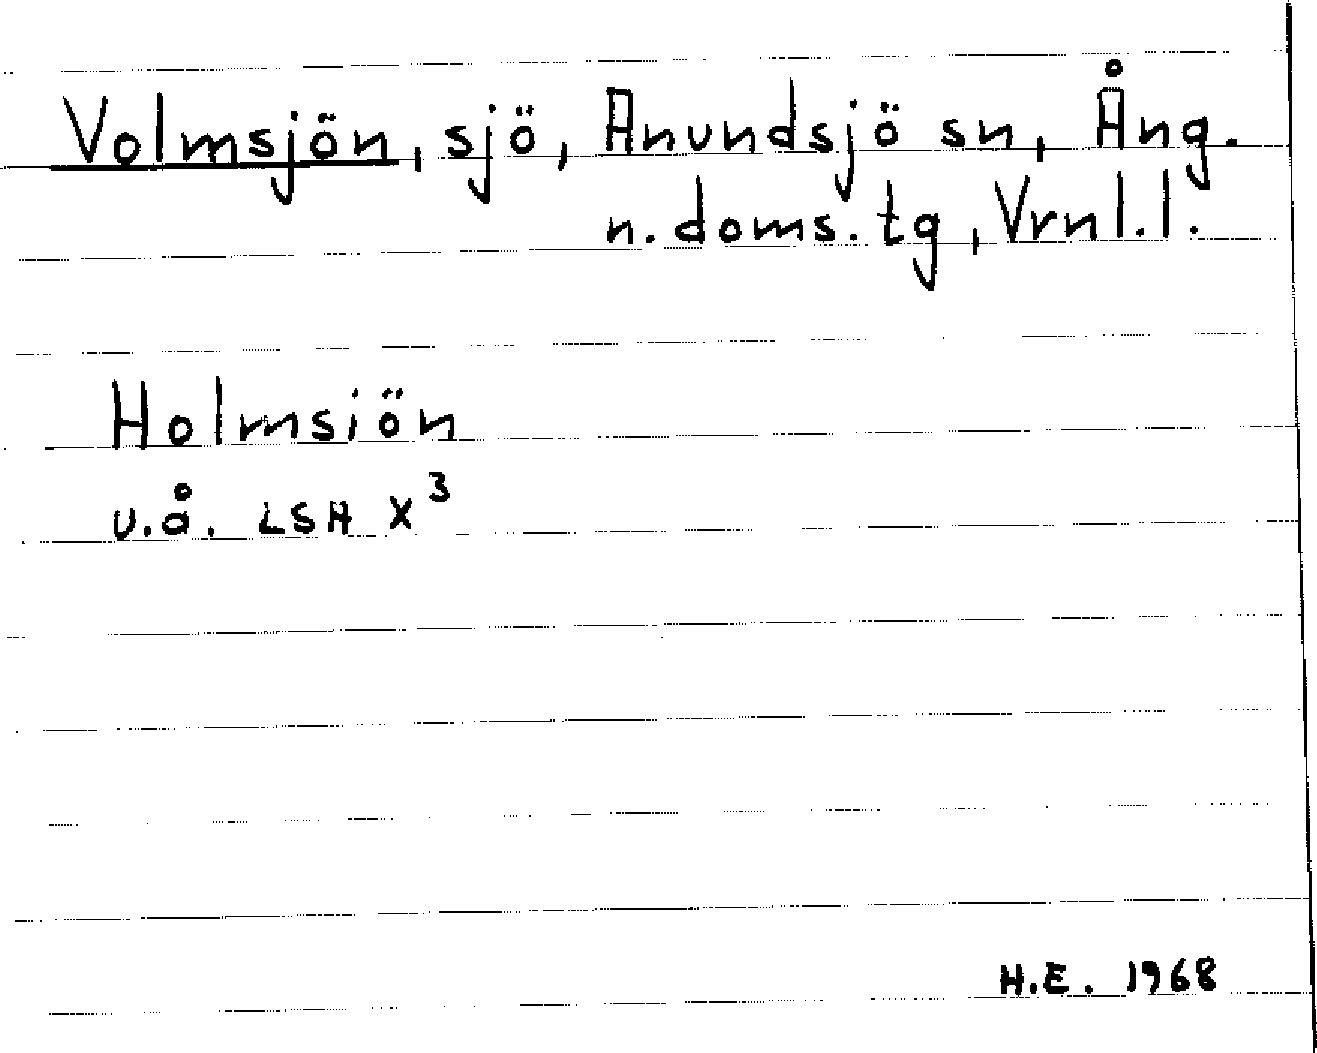 Volmsjön, sjö, Anundsjö sn, Ång.
n. doms. tg, Vrnl. l.
Holmsiön
u.å. LSH X³
H.E. 1968